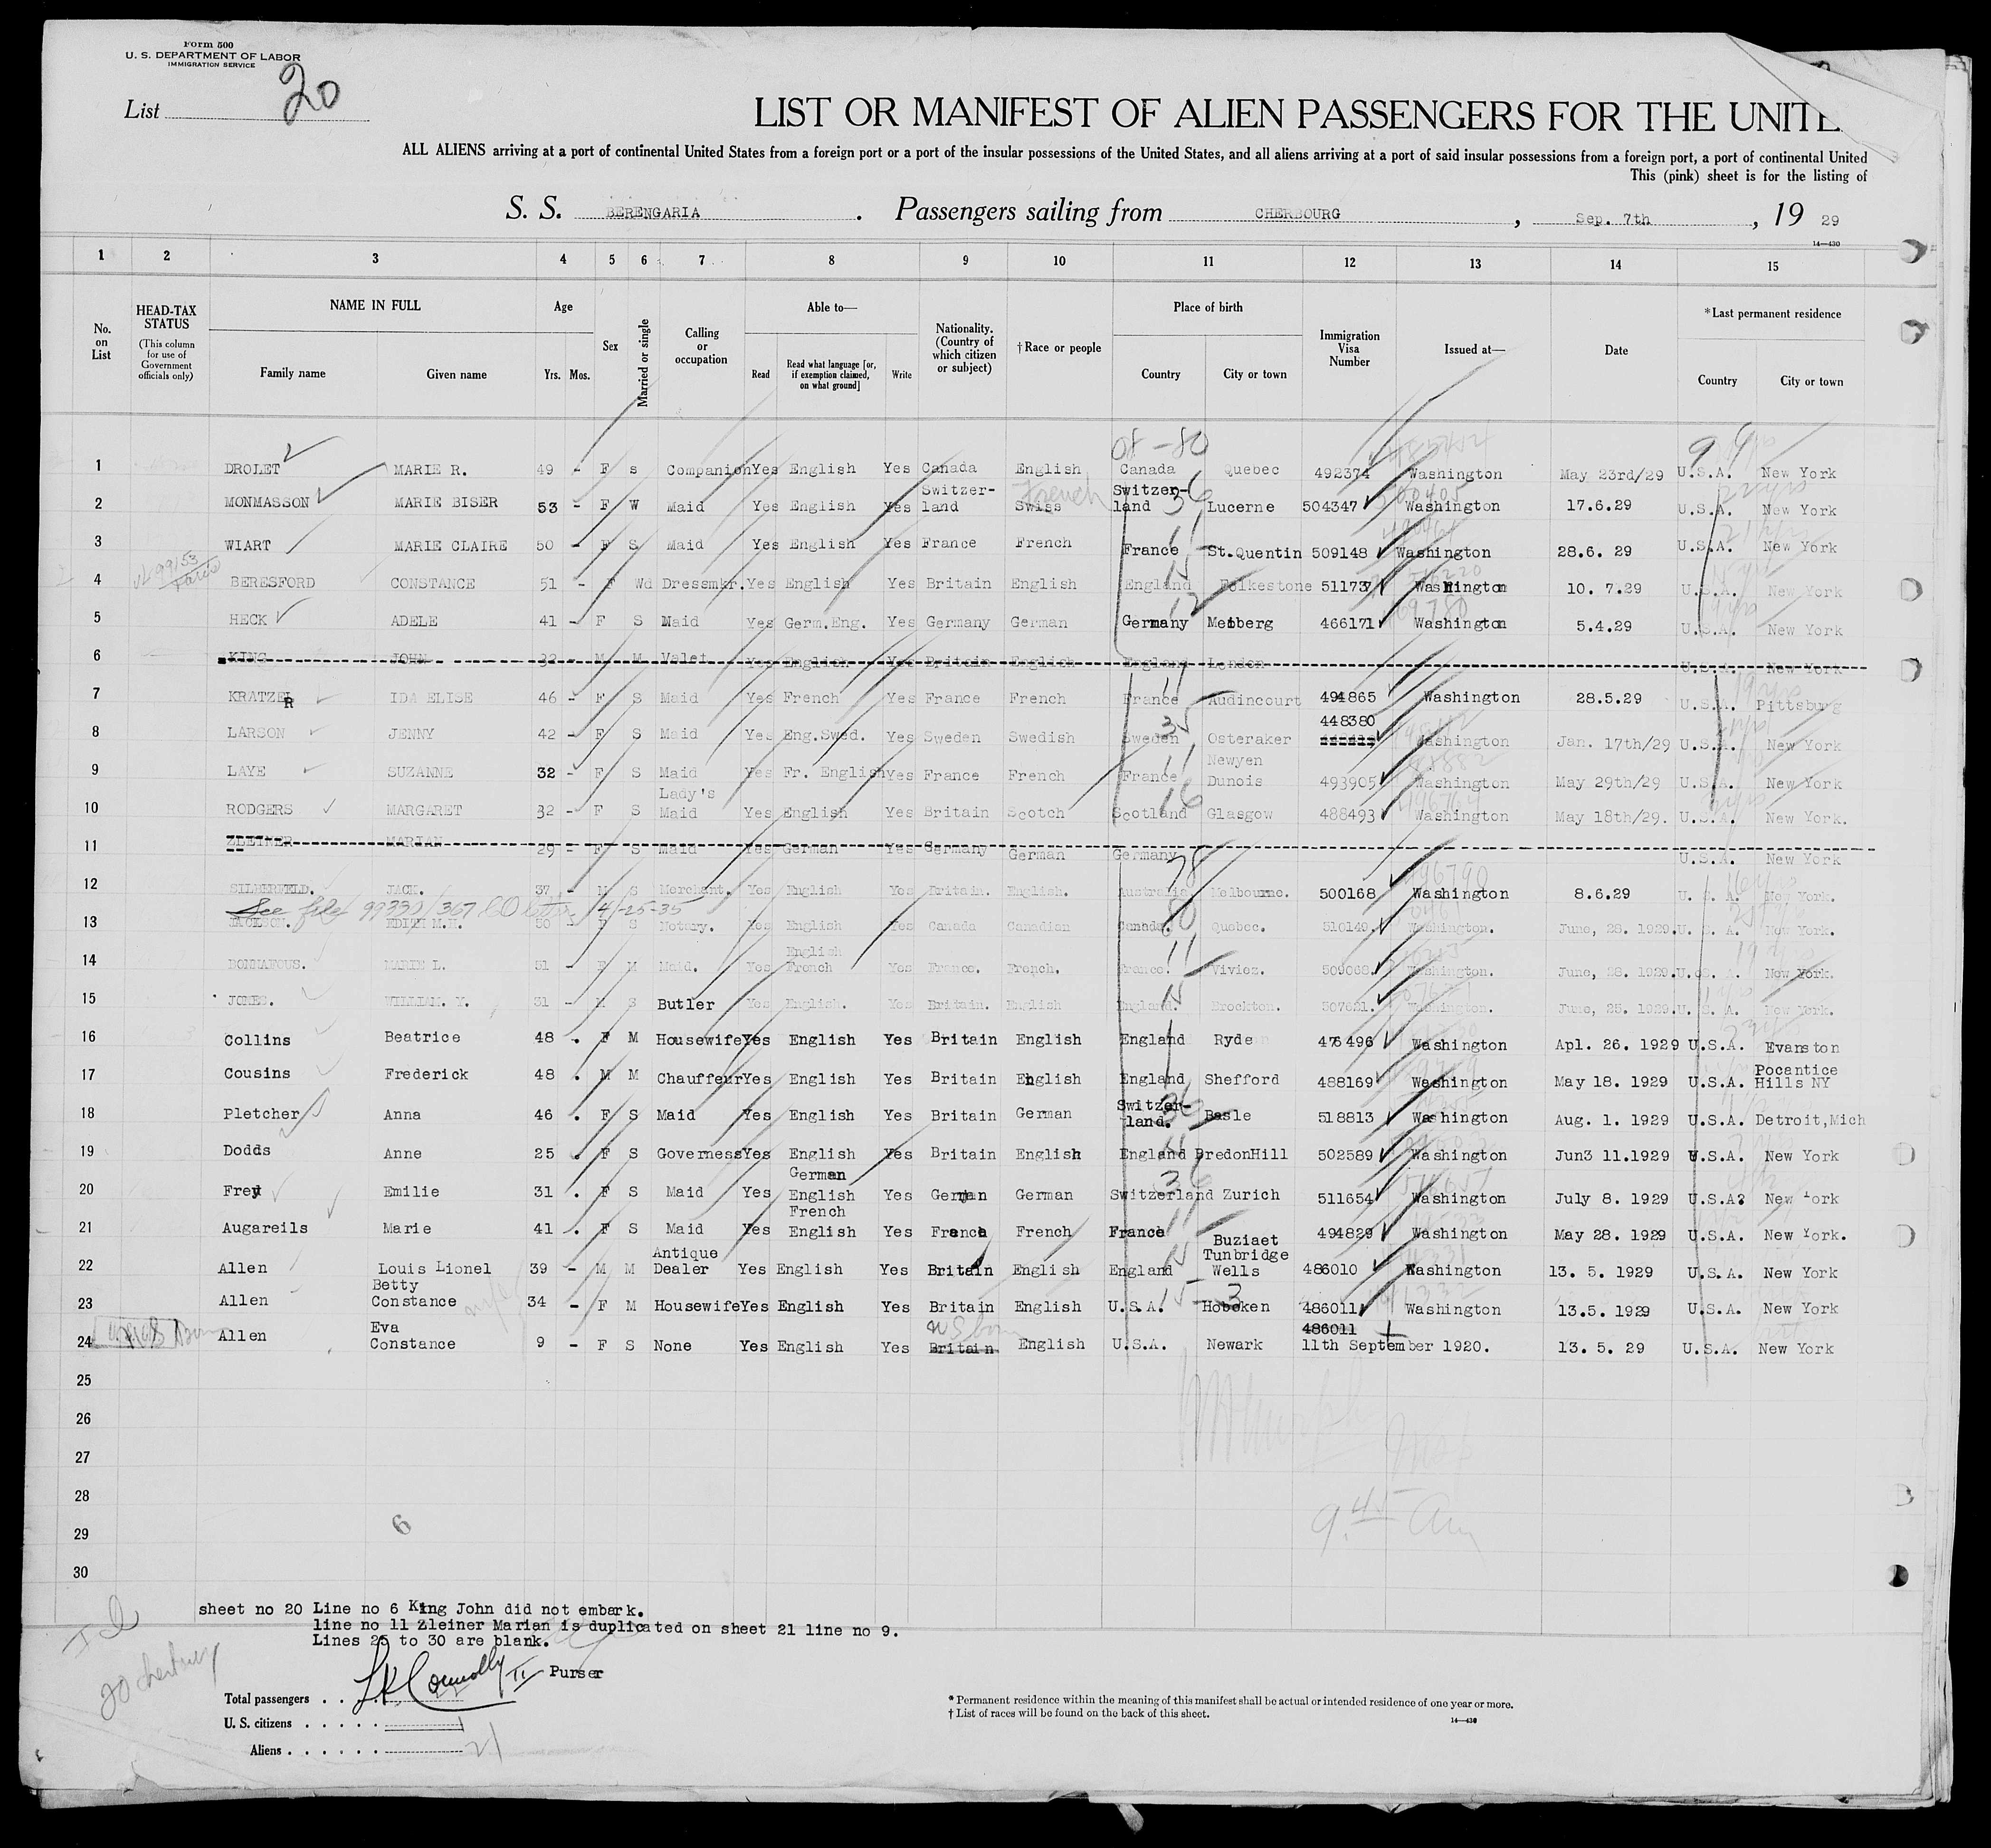 Form 500
U. S. DEPARTMENT OF LABOR
IMMIGRATION SERVICE
List 20
LIST OR MANIFEST OF ALIEN PASSENGERS FOR THE UNITE
ALL ALIENS arriving at a port of continental United States from a foreign port or a port of the insular possessions of the United States, and all aliens arriving at a port of said insular possessions from a foreign port, a port of continental United
This (pink) sheet is for the listing of
S. S. BERENGARIA. Passengers sailing from CHERBOURG, Sep. 7th, 19 29
14—430
1 2 3 4 5 6 7 8 9 10 11 12 13 14 15
No. on List
HEAD-TAX STATUS (This column for use of Government officials only)
NAME IN FULL
Family name Given name
Age
Yrs. Mos.
Sex
Married or single
Calling or occupation
Able to—
Read Read what language [or, if exemption claimed, on what ground] Write
Nationality. (Country of which citizen or subject)
† Race or people
Place of birth
Country City or town
Immigration Visa Number
Issued at—
Date
* Last permanent residence
Country City or town
08 - 80
1 DROLET MARIE R. 49 - F s Companion Yes English Yes Canada English Canada Quebec 492374 Washington May 23rd/29 U.S.A. New York
2 MONMASSON MARIE BISER 53 - F W Maid Yes English Yes Switzer-land Swiss French Switzer-land 36 Lucerne 504347 Washington 17.6.29 U.S.A. New York
3 WIART MARIE CLAIRE 50 - F S Maid Yes English Yes France French France 11 St.Quentin 509148 Washington 28.6. 29 U.S.A. New York
4 BERESFORD CONSTANCE 51 - F Wd Dressmkr. Yes English Yes Britain English England 15 Folkestone 51173 Washington 10. 7.29 U.S.A. New York
5 HECK ADELE 41 - F S Maid Yes Germ.Eng. Yes Germany German Germany 12 466171 Washington 5.4.29 U.S.A. New York
6 KING JOHN 32 - M M Valet Yes English Yes Britain English England London U.S.A. New York
7 KRATZER IDA ELISE 46 - F S Maid Yes French Yes France French France 11 Audincourt 494865 Washington 28.5.29 U.S.A. Pittsburg
8 LARSON JENNY 42 - F S Maid Yes Eng.Swed. Yes Sweden Swedish Sweden 35 Osteraker 448380 Washington Jan. 17th/29 U.S.A. New York
9 LAYE SUZANNE 32 - F S Maid Yes Fr. English Yes France French France 11 Newyen Dunois 493905 Washington May 29th/29 U.S.A. New York
10 RODGERS MARGARET 32 - F S Lady's Maid Yes English Yes Britain Scotch Scotland 16 Glasgow 488493 Washington May 18th/29. U.S.A. New York.
11 ZLEINER MARIAN 29 - F S Maid Yes German Yes Germany German Germany U.S.A. New York
12 SILBERFELD. JACK. 37 - M S Merchant. Yes English Yes Britain. English. Australia 78 Melbourne. 500168 Washington 8.6.29 U. S. A. New York.
See file 99330/367 4-25-35
13 JACKSON. EDITH M.H. 50 - F S Notary. Yes English Yes Canada Canadian Canada. 80 Quebec. 510149 Washington. June, 28. 1929. U. S. A. New York.
14 BONNAFOUS. MARIE L. 31 - F M Maid. Yes English French Yes France. French. France. 11 Viviez. Washington. June, 28. 1929. U. S. A. New York.
15 JONES. WILLIAM. Y. 31 - M S Butler Yes English. Yes Britain. English England. 15 Brockton. 507621. Washington. June, 25. 1929. U. S. A. New York.
16 Collins Beatrice 48 . F M Housewife Yes English Yes Britain English England Ryde 476496 Washington Apl. 26. 1929 U.S.A. Evanston
17 Cousins Frederick 48 . M M Chauffeur Yes English Yes Britain English England Shefford 488169 Washington May 18. 1929 U.S.A. Pocantice Hills NY
18 Pletcher Anna 46 . F S Maid Yes English Yes Britain German Switzer-land. 36 Basle 518813 Washington Aug. 1. 1929 U.S.A. Detroit,Mich
19 Dodds Anne 25 . F S Governess Yes English Yes Britain English England BredonHill 502589 Washington Jun3 11.1929 U.S.A. New York
20 Frey Emilie 31 . F S Maid Yes German English Yes German German Switzerland 36 Zurich 511654 Washington July 8. 1929 U.S.A? New York
21 Augareils Marie 41 . F S Maid Yes French English Yes France French France 11 Buziaet 494829 Washington May 28. 1929 U.S.A. New York.
22 Allen Louis Lionel 39 - M M Antique Dealer Yes English Yes Britain English England 15 Tunbridge Wells 486010 Washington 13. 5. 1929 U.S.A. New York
23 Allen Betty Constance 34 - F M Housewife Yes English Yes Britain English U.S.A. 15-3 Hoboken 486011 Washington 13.5. 1929 U.S.A. New York
24 Allen Eva Constance 9 - F S None Yes English Yes US born Britain English U.S.A. Newark 486011 11th September 1920. 13. 5. 29 U.S.A. New York
25
26
27
28
29 6 9.45 am
30
sheet no 20 Line no 6 King John did not embark.
line no 11 Zleiner Marian is duplicated on sheet 21 line no 9.
Lines 25 to 30 are blank.
Purser
Total passengers . . . .
U. S. citizens . . . . . 1
Aliens . . . . . . 21
* Permanent residence within the meaning of this manifest shall be actual or intended residence of one year or more.
† List of races will be found on the back of this sheet.
14—430